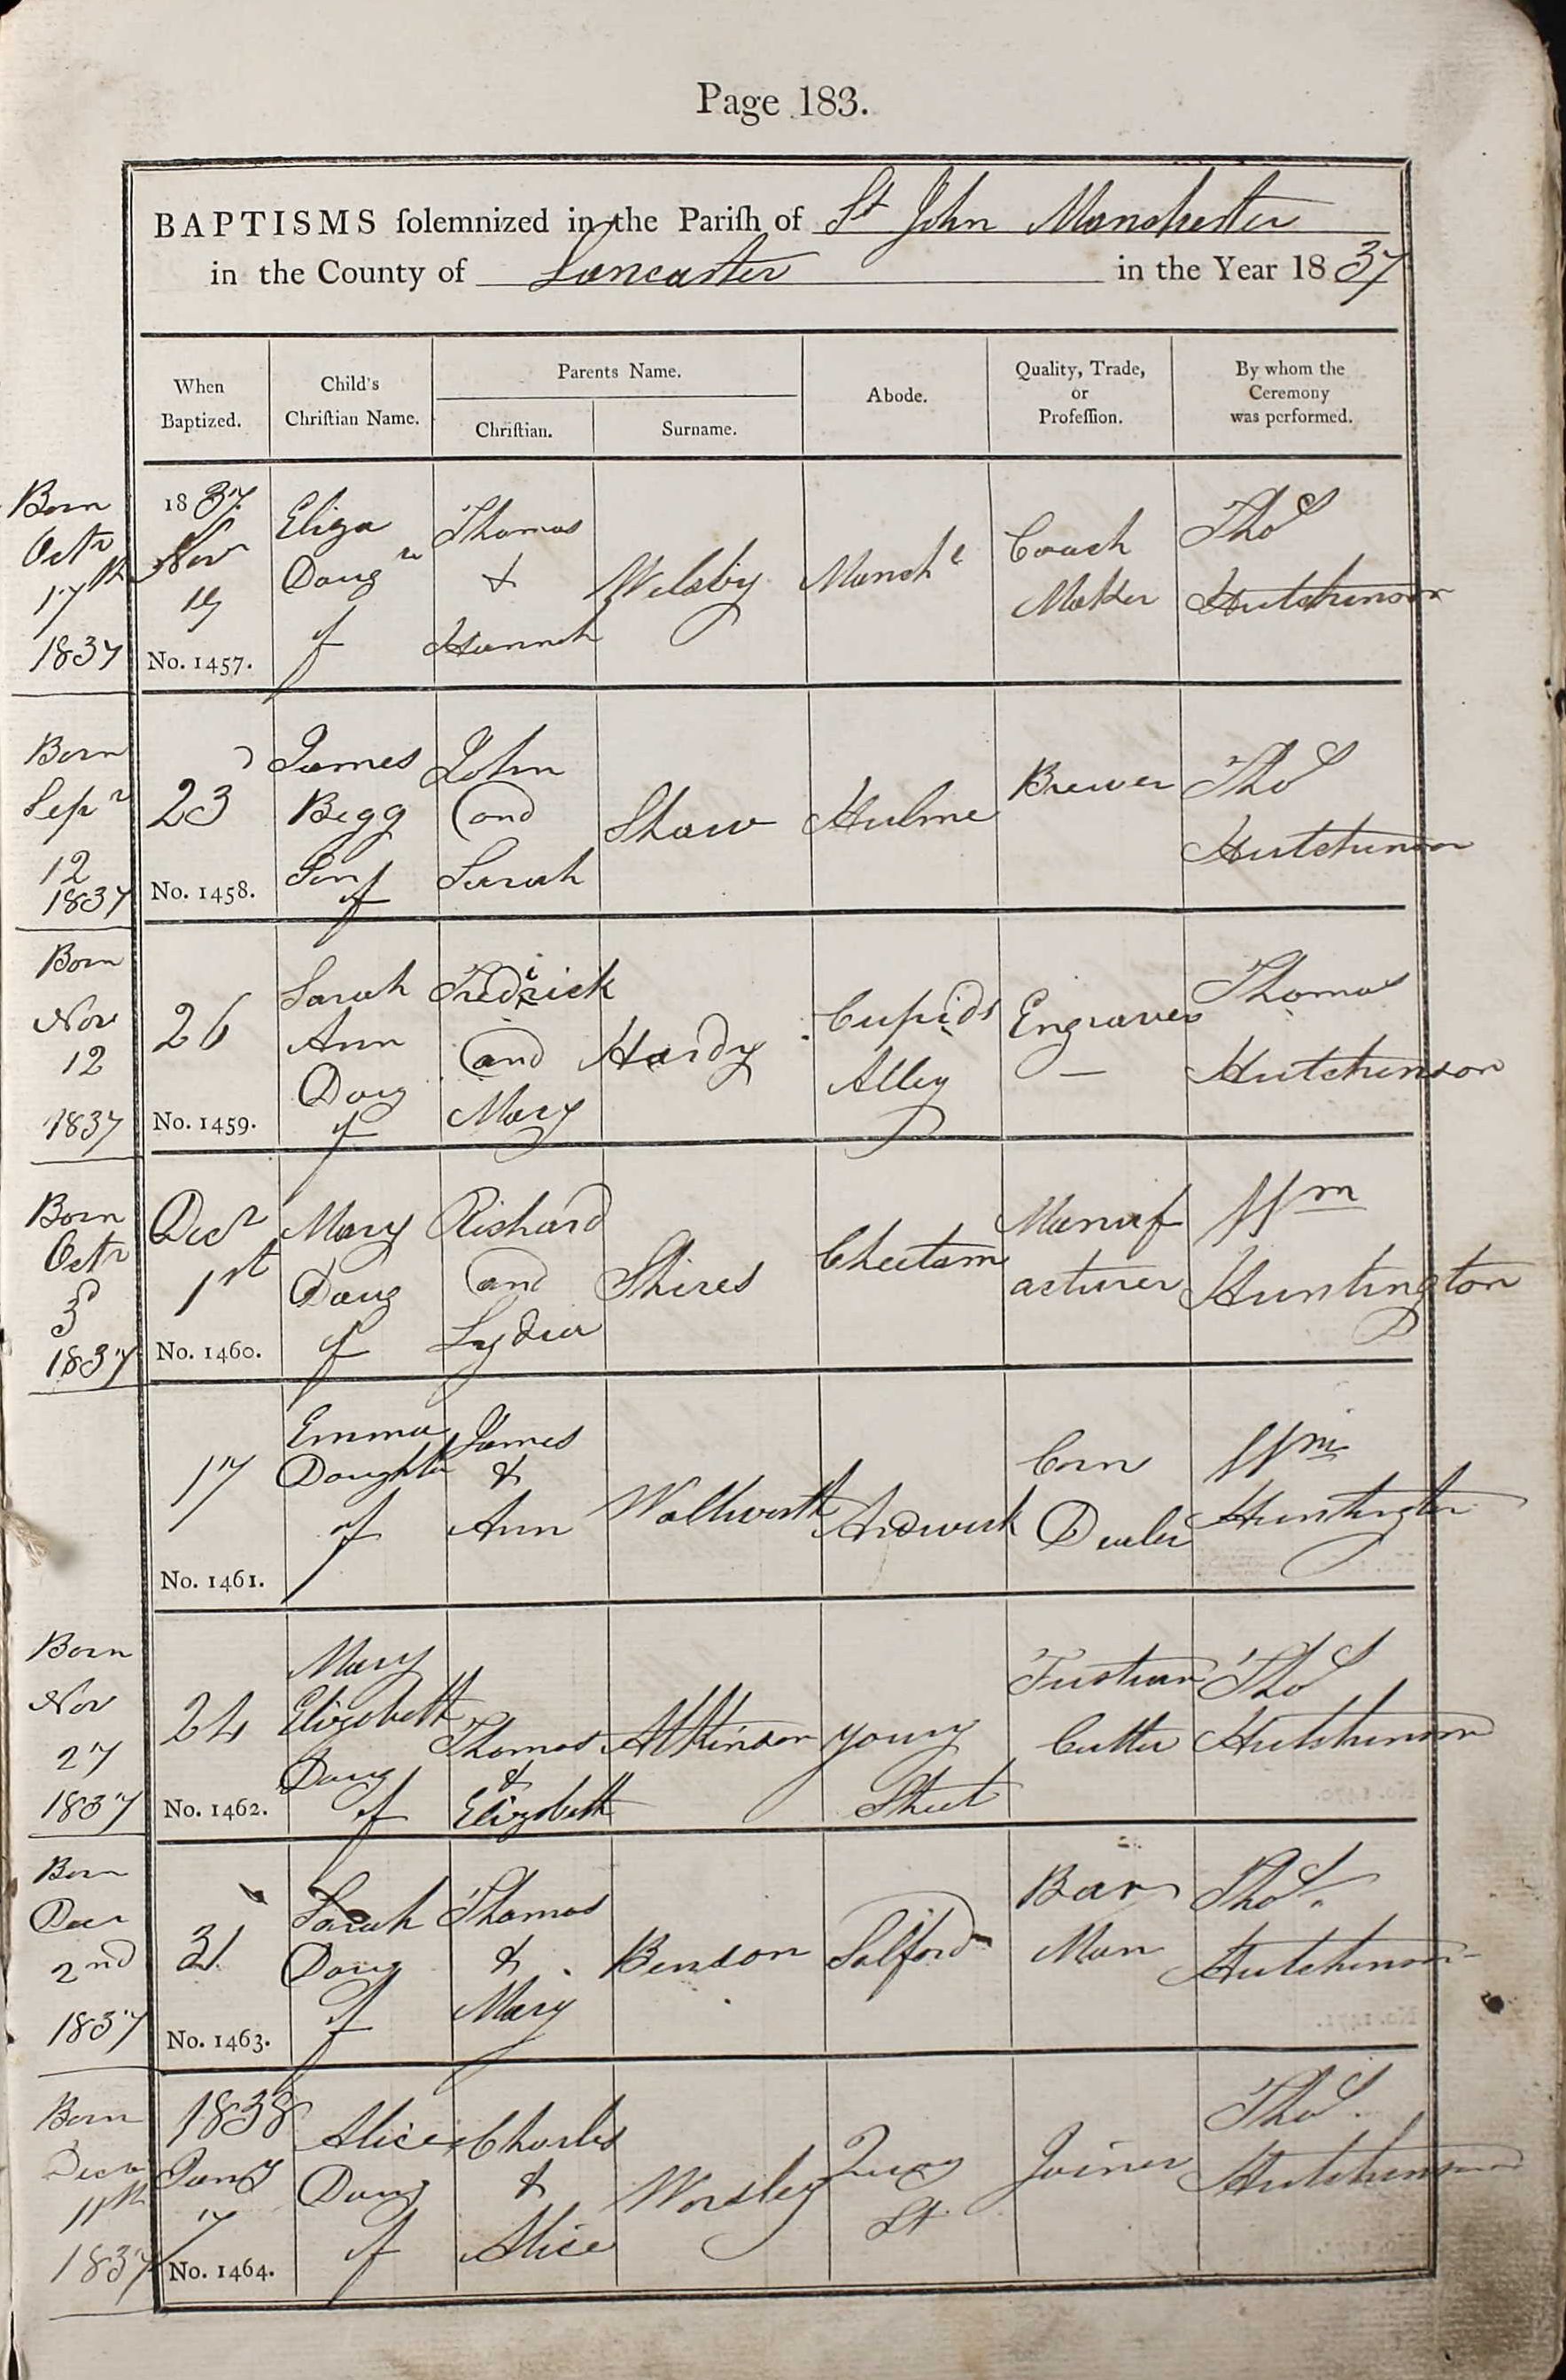 Page 183.
BAPTISMS ſolemnized in the Pariſh of St John Manchester
in the County of Lancaster in the Year 1837
When
Baptized.
Child's
Chriſtian Name.
Parents Name.
Chriſtian.
Surname.
Abode.
Quality, Trade,
or
Profeſſion.
By whom the
Ceremony
was performed.
Born
Octr
17th
1837
1837.
Novr
19
No. 1457.
Eliza
Daugr
of
Thomas
&
Hannah
Welsby
Manchr
Coach
Maker
Thos
Hutchinson
Born
Sepr
12
1837
23
No. 1458.
James
Begg
Son
of
John
and
Sarah
Shaw
Hulme
Brewer
Thos
Hutchinson
Born
Nov
12
1837
26
No. 1459.
Sarah
Ann
Daug
of
Frederick
and
Mary
Hardy
Cupids
Alley
Engraver
Thomas
Hutchinson
Born
Octr
3
1837
Decr
1st
No. 1460.
Mary
Daug
of
Richard
and
Lydia
Shires
Cheetam
Manuf
acturer
Wm
Huntington
17
No. 1461.
Emma
Daughter
of
James
&
Ann
Walkworth
Ardwick
Corn
Dealer
Wm
Huntington
Born
Nov
27
1837
24
No. 1462.
Mary
Elizabeth
Daug
of
Thomas
&
Elizabeth
Atkinson
Young
Street
Fustian
Cutter
Thos
Hutchinson
Born
Decr
2nd
1837
31
No. 1463.
Sarah
Daug
of
Thomas
&
Mary
Benson
Salford
Bar
Man
Thos.
Hutchinson
Born
Decr
11th
1837
1838
Jany
7
No. 1464.
Alice
Daug
of
Charles
&
Alice
Worsley
Quay
St
Joiner
Thos.
Hutchinson